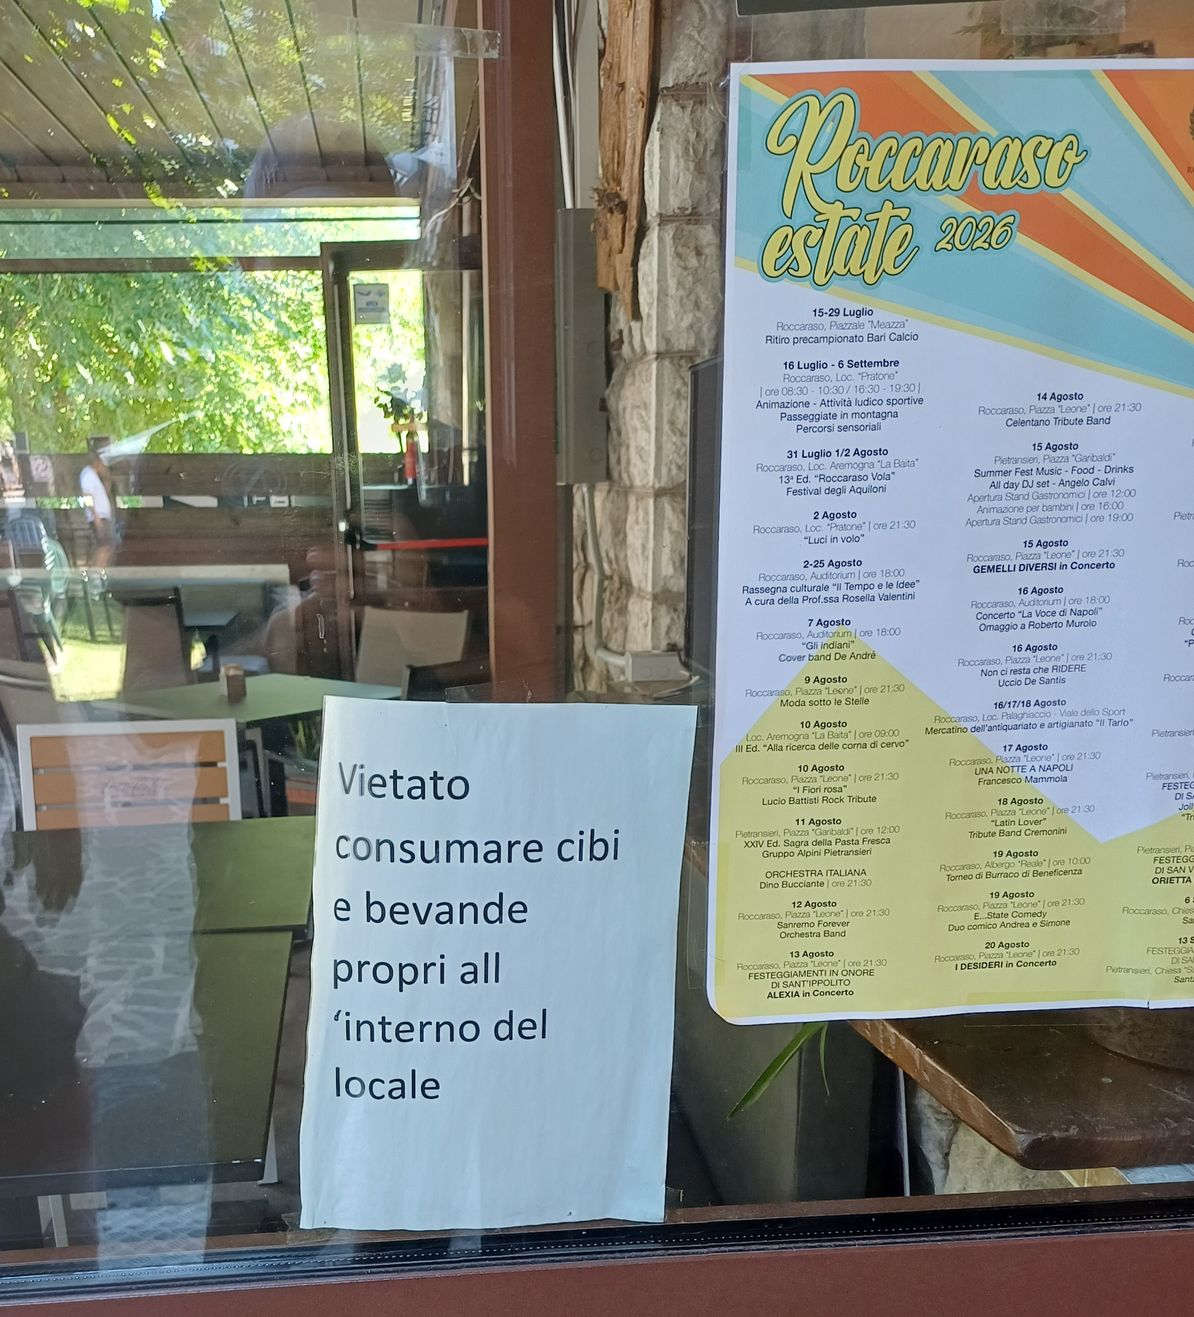 Vietato
consumare cibi
e bevande
propri all
‘interno del
locale
Roccaraso
estate 2026
15-29 Luglio
Roccaraso, Piazzale "Meazza"
Ritiro precampionato Bari Calcio
16 Luglio - 6 Settembre
Roccaraso, Loc. "Pratone"
| ore 08:30 - 10:30 / 16:30 - 19:30 |
Animazione - Attività ludico sportive
Passeggiate in montagna
Percorsi sensoriali
31 Luglio 1/2 Agosto
Roccaraso, Loc. Aremogna "La Baita"
13ª Ed. "Roccaraso Vola"
Festival degli Aquiloni
2 Agosto
Roccaraso, Loc. "Pratone" | ore 21:30
"Luci in volo"
2-25 Agosto
Roccaraso, Auditorium | ore 18:00
Rassegna culturale "Il Tempo e le Idee"
A cura della Prof.ssa Rosella Valentini
7 Agosto
Roccaraso, Auditorium | ore 18:00
"Gli indiani"
Cover band De André
9 Agosto
Roccaraso, Piazza "Leone" | ore 21:30
Moda sotto le Stelle
10 Agosto
Loc. Aremogna "La Baita" | ore 09:00
III Ed. "Alla ricerca delle corna di cervo"
10 Agosto
Roccaraso, Piazza "Leone" | ore 21:30
"I Fiori rosa"
Lucio Battisti Rock Tribute
11 Agosto
Pietransieri, Piazza "Garibaldi" | ore 12:00
XXIV Ed. Sagra della Pasta Fresca
Gruppo Alpini Pietransieri
ORCHESTRA ITALIANA
Dino Bucciante | ore 21:30
12 Agosto
Roccaraso, Piazza "Leone" | ore 21:30
Sanremo Forever
Orchestra Band
13 Agosto
Roccaraso, Piazza "Leone" | ore 21:30
FESTEGGIAMENTI IN ONORE
DI SANT'IPPOLITO
ALEXIA in Concerto
14 Agosto
Roccaraso, Piazza "Leone" | ore 21:30
Celentano Tribute Band
15 Agosto
Pietransieri, Piazza "Garibaldi"
Summer Fest Music - Food - Drinks
All day DJ set - Angelo Calvi
Apertura Stand Gastronomici | ore 12:00
Animazione per bambini | ore 16:00
Apertura Stand Gastronomici | ore 19:00
15 Agosto
Roccaraso, Piazza "Leone" | ore 21:30
GEMELLI DIVERSI in Concerto
16 Agosto
Roccaraso, Auditorium | ore 18:00
Concerto "La Voce di Napoli"
Omaggio a Roberto Murolo
16 Agosto
Roccaraso, Piazza "Leone" | ore 21:30
Non ci resta che RIDERE
Uccio De Santis
16/17/18 Agosto
Roccaraso, Loc. Palaghiaccio - Viale dello Sport
Mercatino dell'antiquariato e artigianato "Il Tarlo"
17 Agosto
Roccaraso, Piazza "Leone" | ore 21:30
UNA NOTTE A NAPOLI
Francesco Mammola
18 Agosto
Roccaraso, Piazza "Leone" | ore 21:30
"Latin Lover"
Tribute Band Cremonini
19 Agosto
Roccaraso, Albergo "Reale" | ore 10:00
Torneo di Burraco di Beneficenza
19 Agosto
Roccaraso, Piazza "Leone" | ore 21:30
E...State Comedy
Duo comico Andrea e Simone
20 Agosto
Roccaraso, Piazza "Leone" | ore 21:30
I DESIDERI in Concerto
FESTEGG
DI SAN V
ORIETTA
Roccaraso, Chies
13 S
FESTEGGIA
DI SA
Pietransieri, Chiesa "S